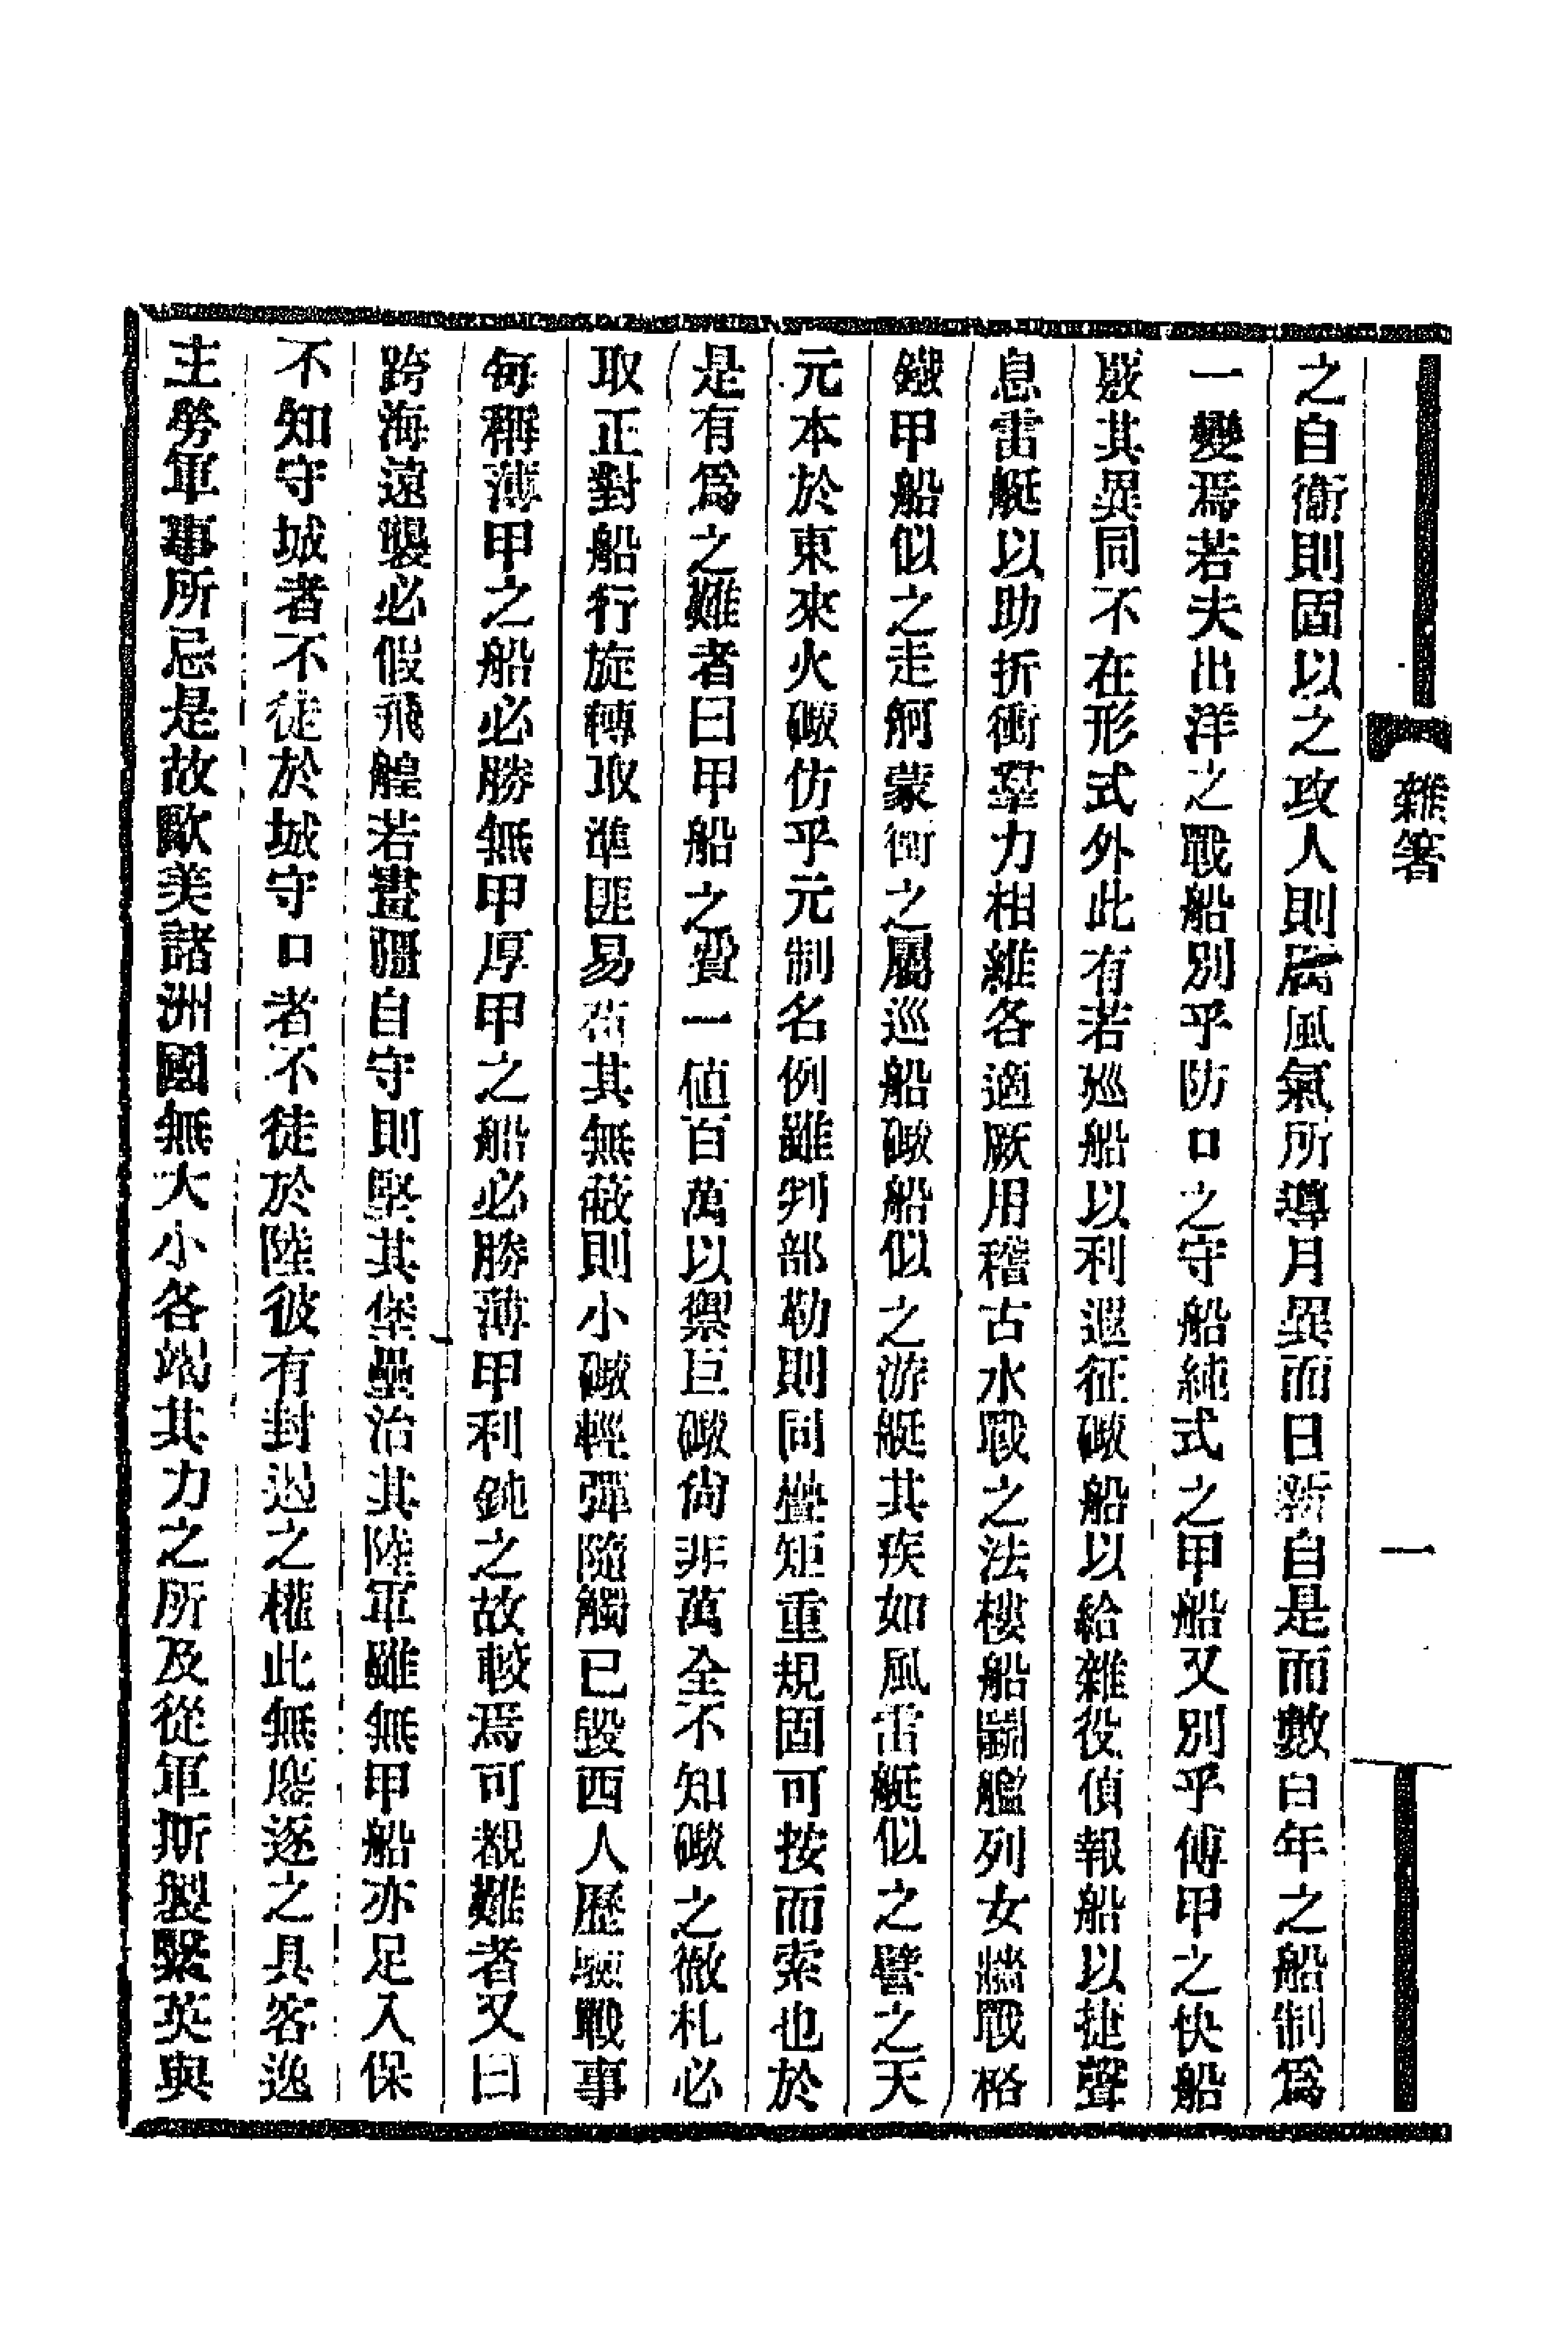 雜箸
一
之自衞則固以之攻人則厲風氣所導月異而日新自是而數百年之船制爲
一變焉若夫出洋之戰船別乎防口之守船純式之甲船又別乎傅甲之快船
覈其異同不在形式外此有若廵船以利遄征礮船以給雜役偵報船以捷聲
息雷艇以助折衝羣力相維各適厥用稽古水戰之法樓船鬭艦列女牆戰格
鐵甲船似之走舸蒙衝之屬巡船礮船似之游艇其疾如風雷艇似之譬之天
元本於東來火礮仿乎元制名例雖判部勒則同疊矩重規固可按而索也於
是有爲之難者曰甲船之費一值百萬以禦巨礮尙非萬全不知礮之徹札必
取正對船行旋轉取準匪易苟其無蔽則小礮輕彈隨觸已毀西人歷驗戰事
每稱薄甲之船必勝無甲厚甲之船必勝薄甲利鈍之故較焉可覩難者又曰
跨海遠襲必假飛艎若畫疆自守則堅其堡壘治其陸軍雖無甲船亦足入保
不知守城者不徒於城守口者不徒於陸彼有封遏之權此無驅逐之具客逸
主勞軍事所忌是故歐美諸洲國無大小各竭其力之所及從軍斯製緊英與